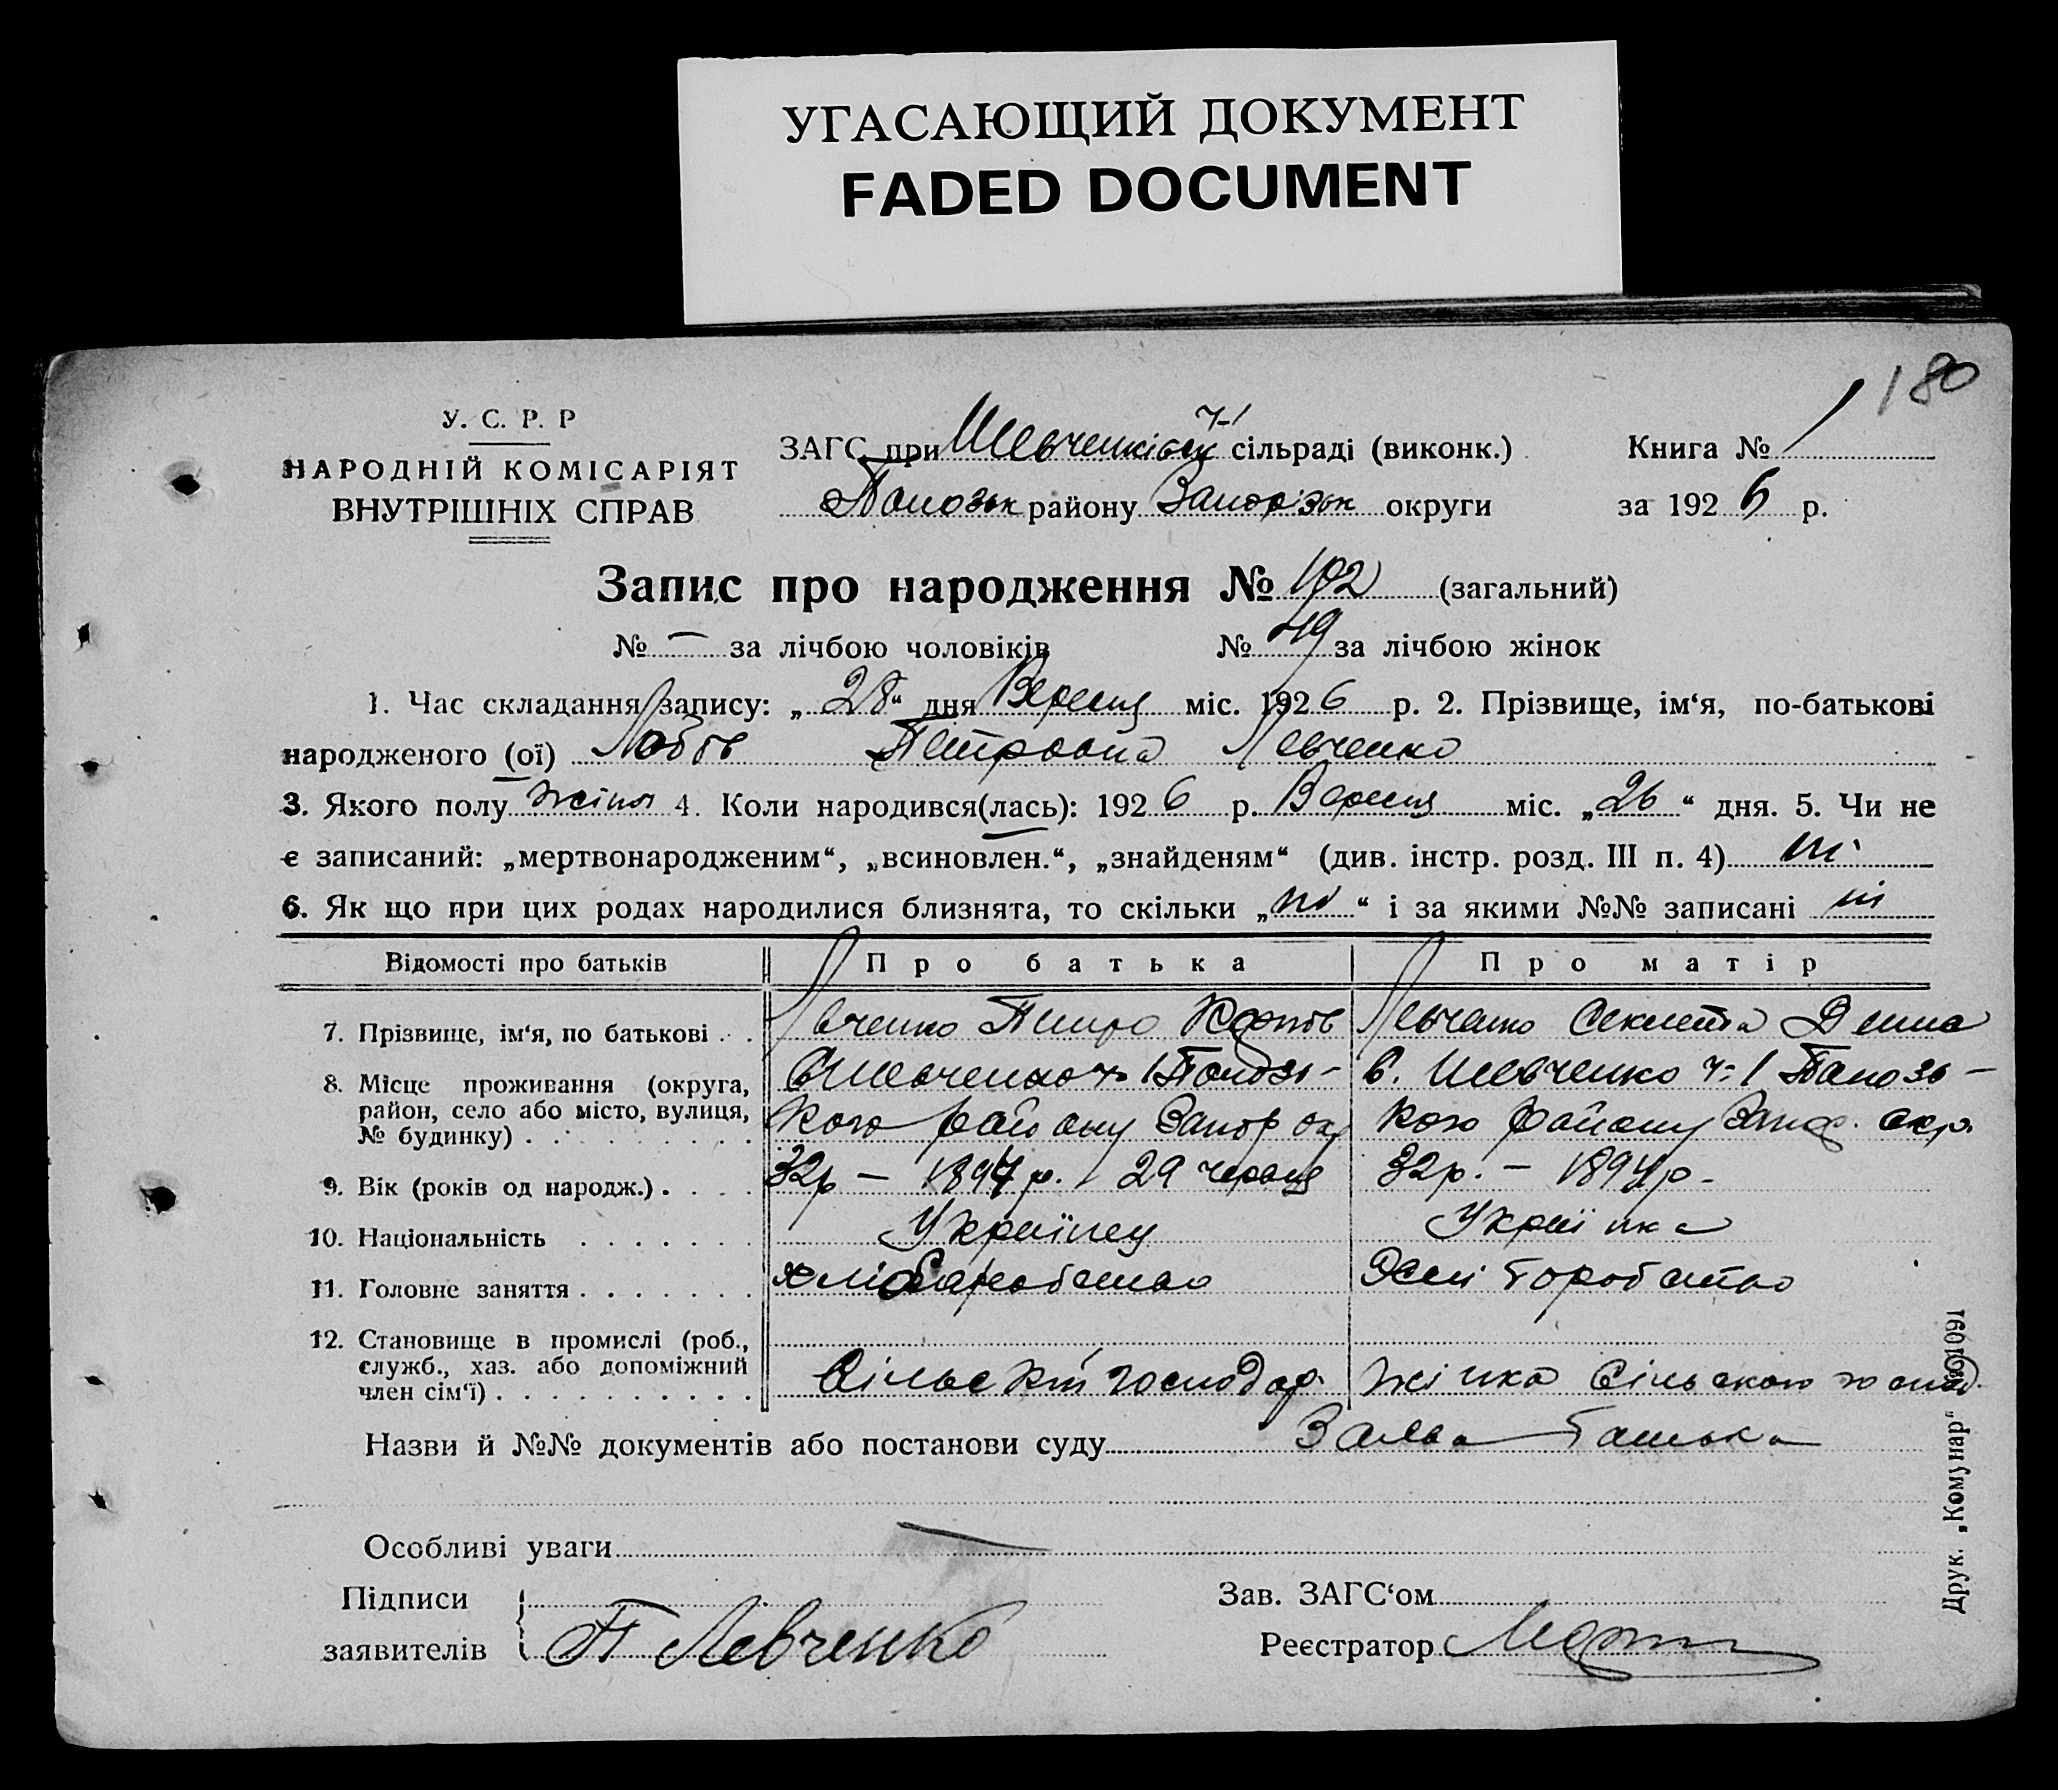 УГАСАЮЩИЙ ДОКУМЕНТ
FADED DOCUMENT
180
У. С. Р. Р
НАРОДНІЙ КОМІСАРІЯТ
ВНУТРІШНІХ СПРАВ
ЗАГС при Шевченківськ ч-1 сільраді (виконк.)
району Запорізьк округи
Книга № 1
за 192 6 р.
Запис про народження № (загальний)
№ — за лічбою чоловіків № 49 за лічбою жінок
1. Час складання запису: „ 28 “ дня Вересня міс. 192 6 р. 2. Прізвище, ім‘я, по-батькові
народженого (ої) Любов Петровна Левченко
3. Якого полу жіноч 4. Коли народився(лась): 192 6 р. Вересня міс. „ 26 “ дня. 5. Чи не
є записаний: „мертвонародженим“, „всиновлен.“, „знайденям“ (див. інстр. розд. III п. 4) ні
6. Як що при цих родах народилися близнята, то скільки „ ні “ і за якими №№ записані ні
Відомості про батьків Про батька Про матір
7. Прізвище, ім‘я, по батькові . . Левченко Петро Левченко Секлета
8. Місце проживання (округа, район, село або місто, вулиця, № будинку) . . . . . . . . .
с. Шевченко ч. 1
кого району Запор окр
с. Шевченко ч. 1
кого району Запор. окр.
9. Вік (років од народж.) . . . . 32р — 1894 р. 29 червця 32р. — 1894р.
10. Національність . . . . . . . Українец Українка
11. Головне заняття . . . . . . . хліборобство хліборобство
12. Становище в промислі (роб., служб., хаз. або допоміжний член сім‘ї) . . . . . . . . . .
сільськ господар. жінка сільського господ.
Назви й №№ документів або постанови суду Заява батька
Особливі уваги
Підписи
заявителів
П Левченко
Зав. ЗАГС‘ом
Реєстратор
Друк. „Комунар“